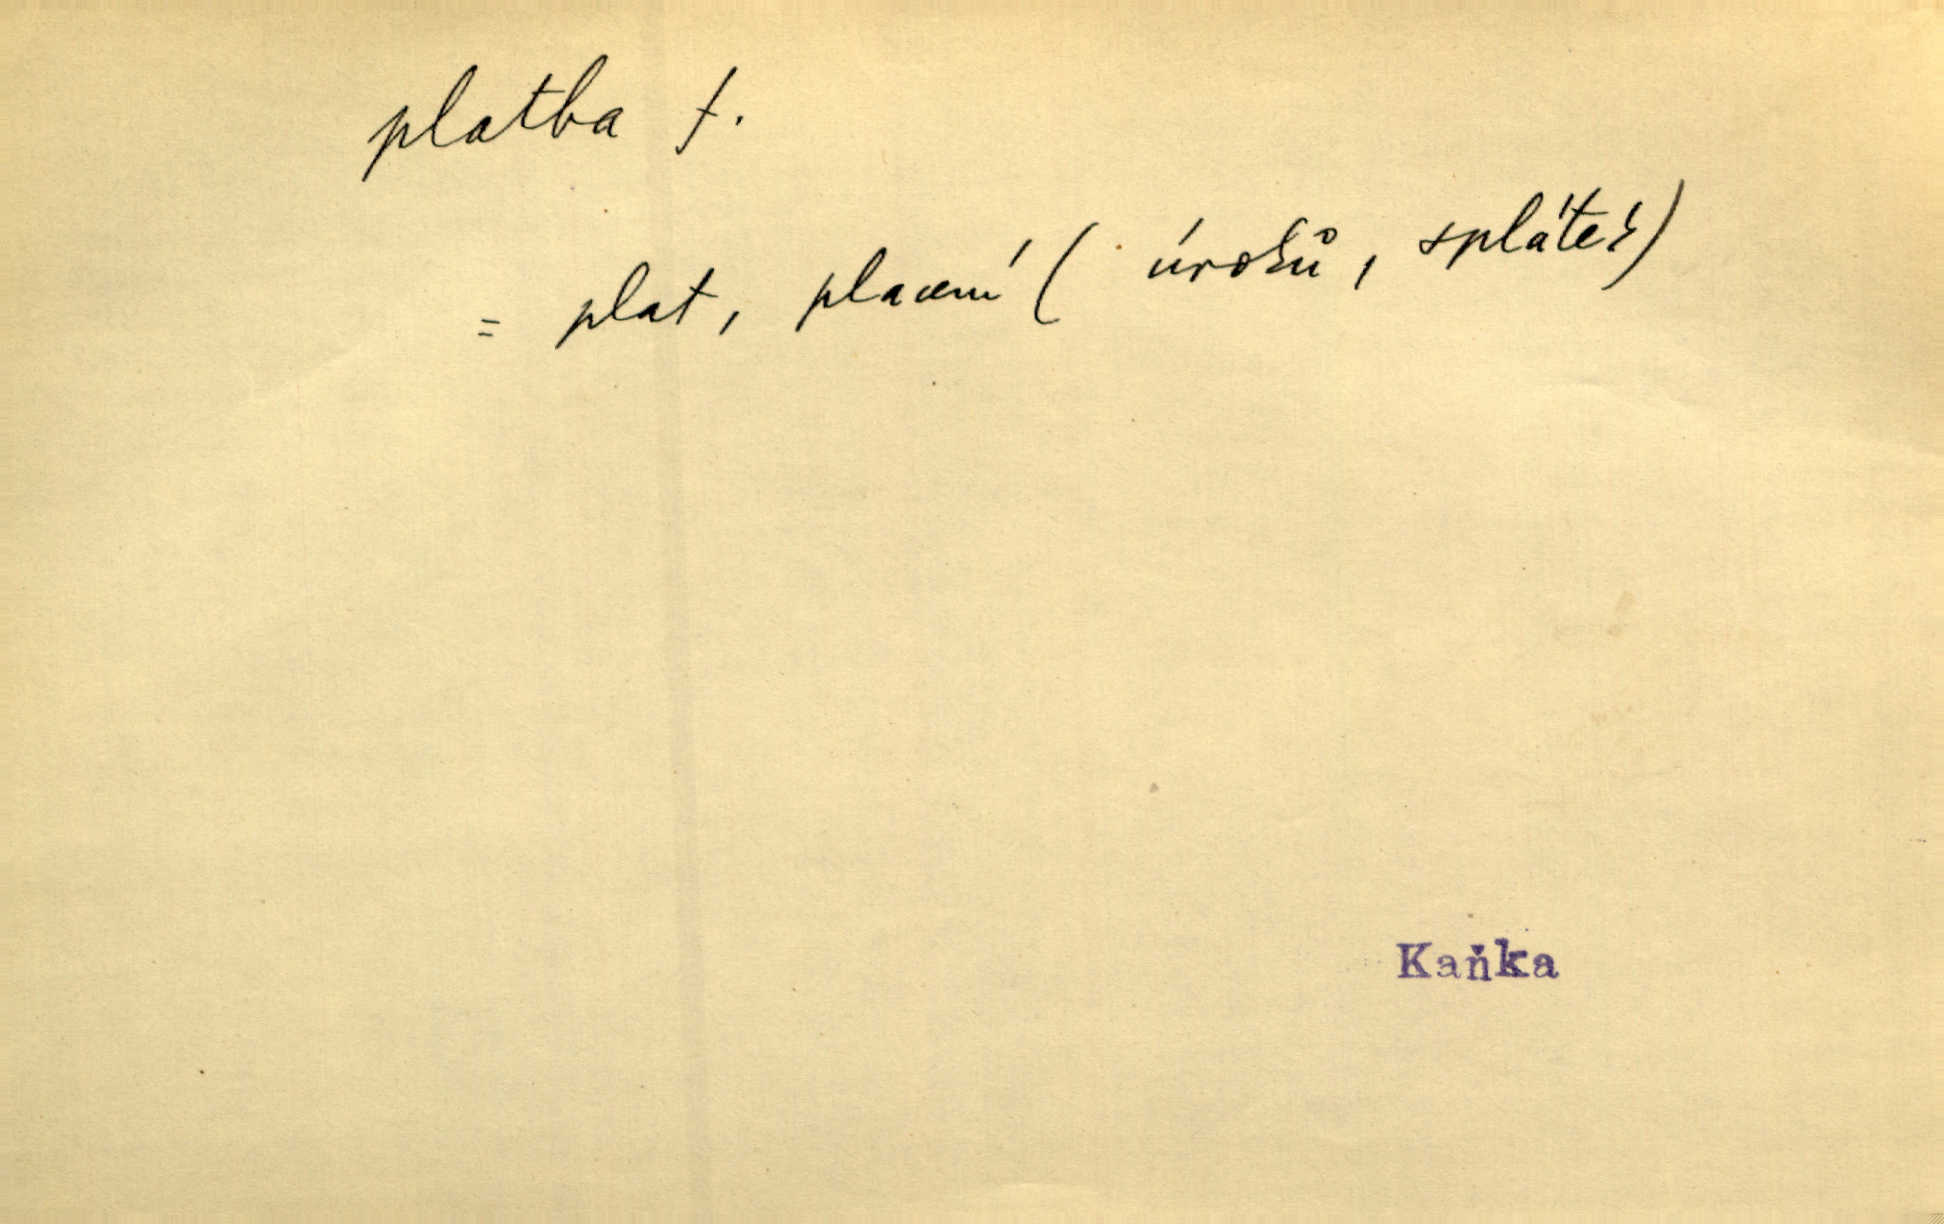 platba f.
= plat, placení ( úroků, splátek)
Kaňka